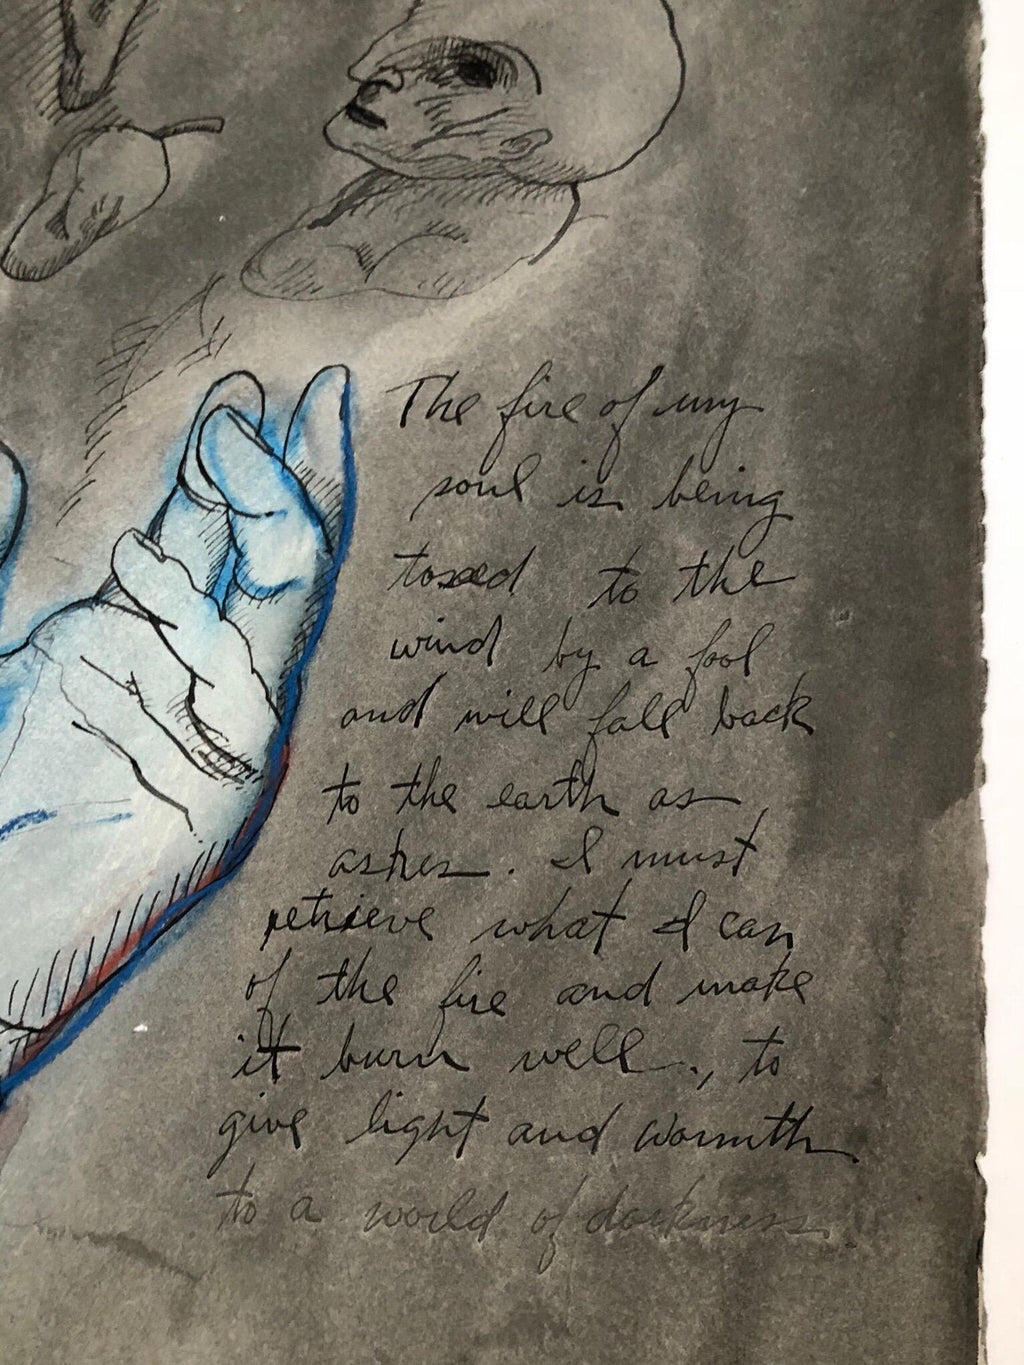 The fire of my
soul is being
tossed to the
wind by a fool
and will fall back
to the earth as
ashes. I must
retrieve what I can
of the fire and make
it burn well., to
give light and warmth
to a world of darkness.